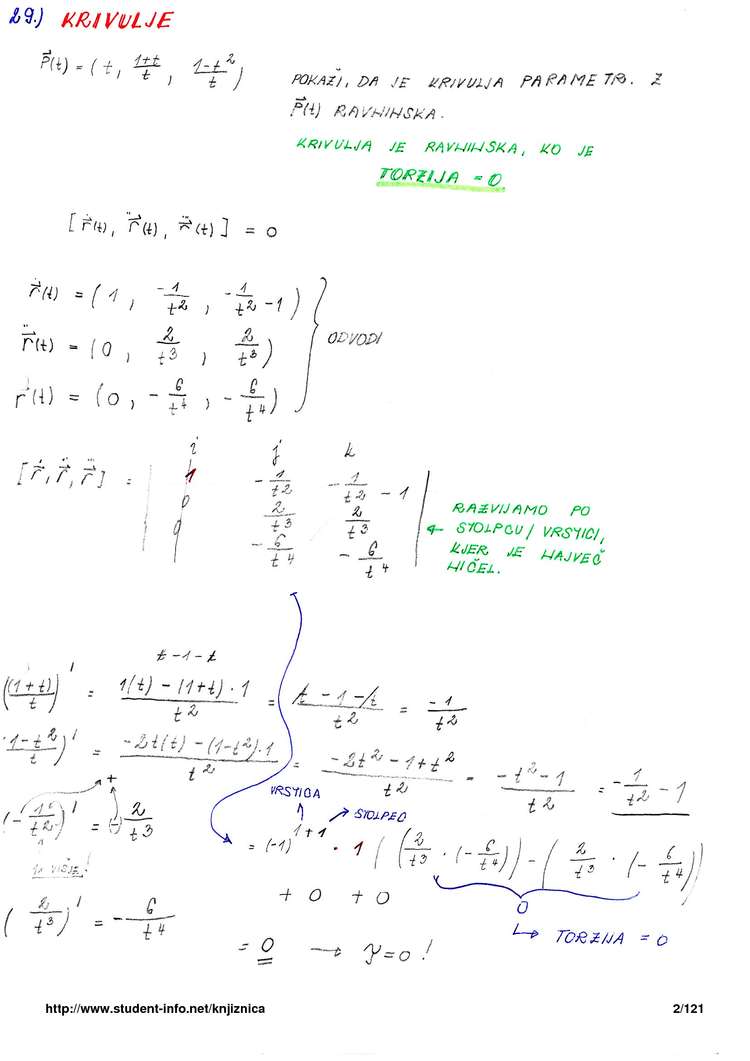 29.) KRIVULJE
P⃗(t) = (t, (1+t)/t, (1-t²)/t)
POKAŽI, DA JE KRIVULJA PARAMETR. Z
P⃗(t) RAVNINSKA.
KRIVULJA JE RAVNINSKA, KO JE
TORZIJA = 0
[ṙ(t), r̈(t), r⃛(t)] = 0
ṙ(t) = (1, -1/t², -1/t² - 1)
r̈(t) = (0, 2/t³, 2/t³)
ODVODI
r⃛(t) = (0, -6/t⁴, -6/t⁴)
i j k
[ṙ, r̈, r⃛] = | 1 -1/t² -1/t² - 1 |
0 2/t³ 2/t³
0 -6/t⁴ -6/t⁴
RAZVIJAMO PO
← STOLPCU / VRSTICI,
KJER JE NAJVEČ
NIČEL.
t - 1 - t
((1+t)/t)' = (1(t) - (1+t)·1)/t² = (t - 1 - t)/t² = -1/t²
((1-t²)/t)' = (-2t(t) - (1-t²)·1)/t² = (-2t² - 1 + t²)/t² = (-t² - 1)/t² = -1/t² - 1
+
VRSTICA
STOLPEC
(-1/t²)' = (-) 2/t³
= (-1)¹⁺¹ · 1 ((2/t³ · (-6/t⁴)) - (2/t³ · (-6/t⁴)))
VIŠJE!
+ 0 + 0
0
(2/t³)' = -6/t⁴
↳ TORZIJA = 0
= 0 → = 0 !
http://www.student-info.net/knjiznica
2/121